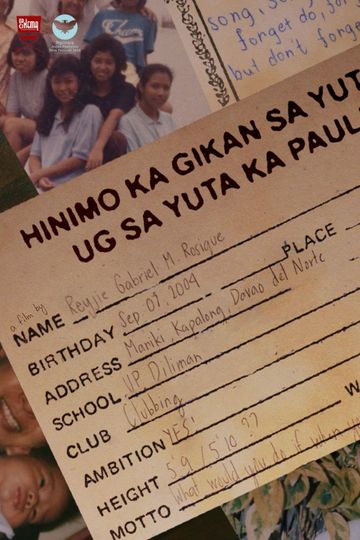 song, so
forget do, for
forget
but don't forge
HINIMO KA GIKAN SA YUT
UG SA YUTA KA PAUL
a film by
NAME Reyjie Gabriel M. Rosique
BIRTHDAY Sep 09, 2004 PLACE
ADDRESS Maniki, Kapalong, Davao del Norte
SCHOOL UP Diliman
CLUB Clubbing W
AMBITION YES!
HEIGHT 5'9 / 5'10 ??
MOTTO What would you do if when you